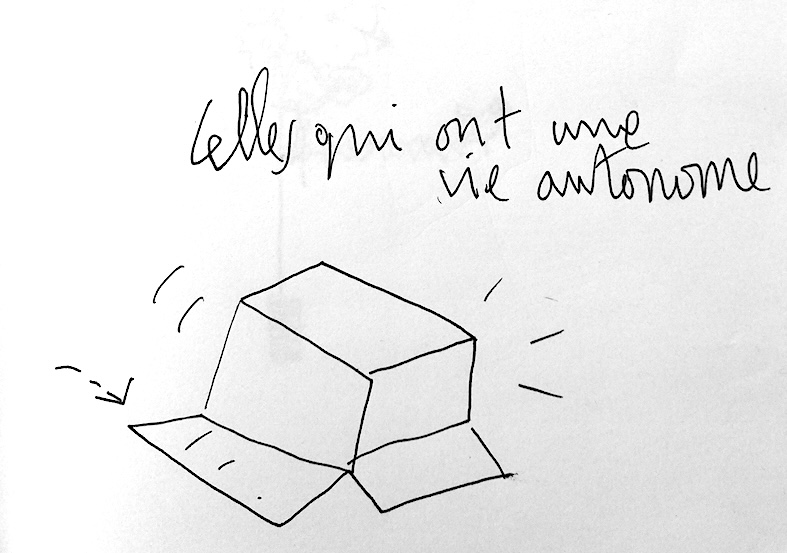 Celles qui ont une
vie autonome